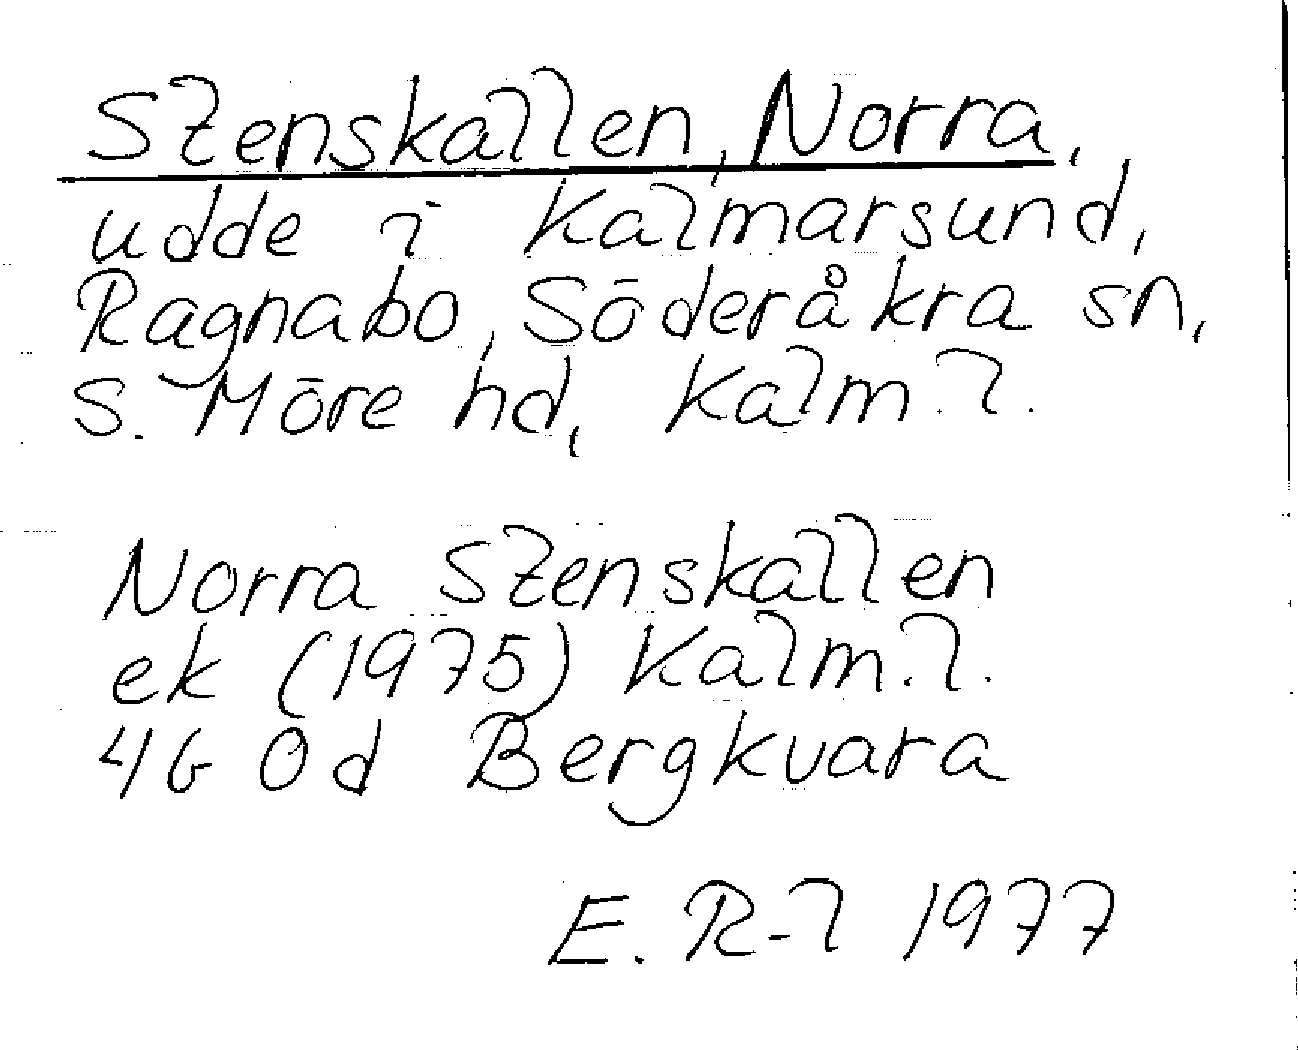 Stenskallen, Norra,
udde i Kalmarsund,
Ragnabo, Söderåkra sn,
S. Möre hd, Kalm. l.
Norra Stenskallen
ek (1975) Kalm. l.
4G 0d Bergkvara
E. R-l 1977